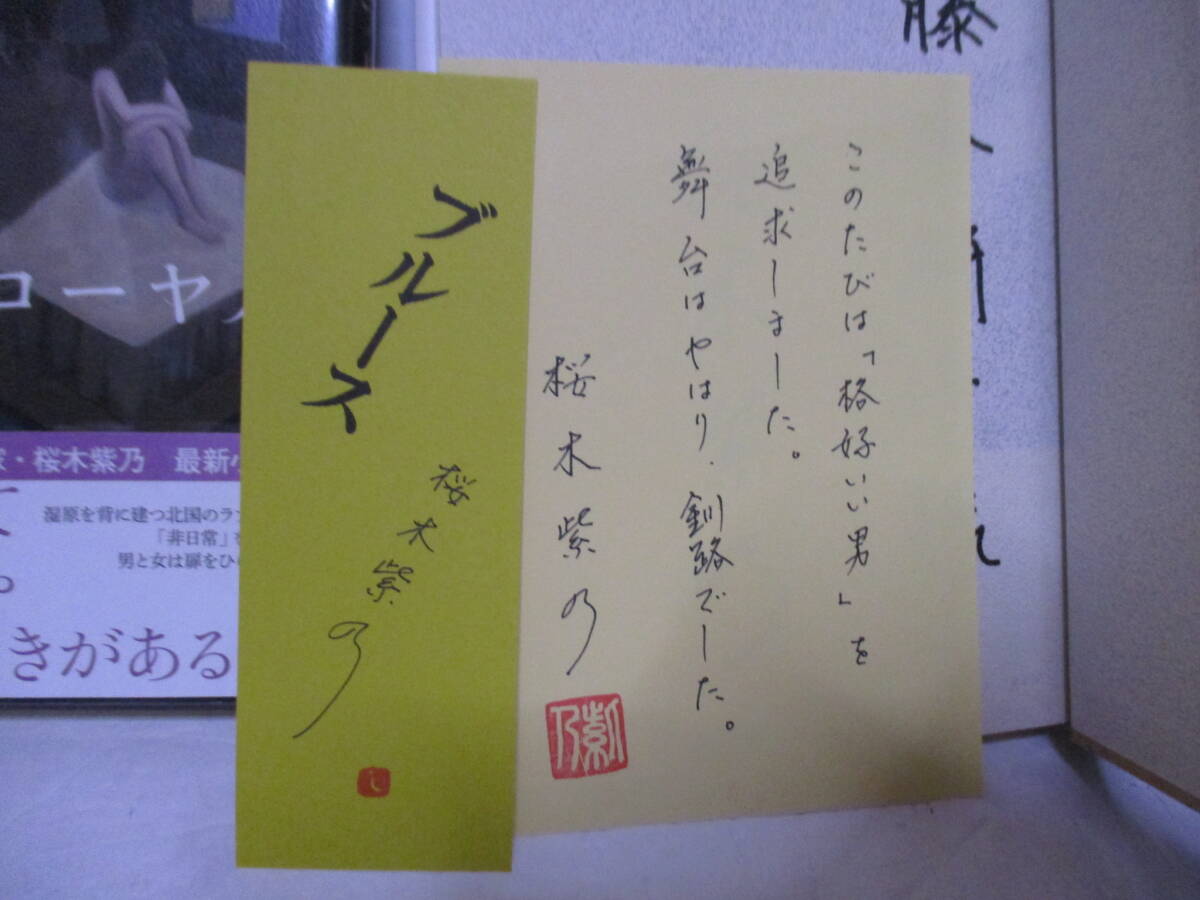 このたびは「格好いい男」を
追求しました。
舞台はやはり、釧路でした。
桜木紫乃
紫乃
ブルース
桜木紫乃
し
藤
ローヤル
家・桜木紫乃 最新小
湿原を背に建つ北国のラブ
「非日常」を
男と女は扉をひ
きがある